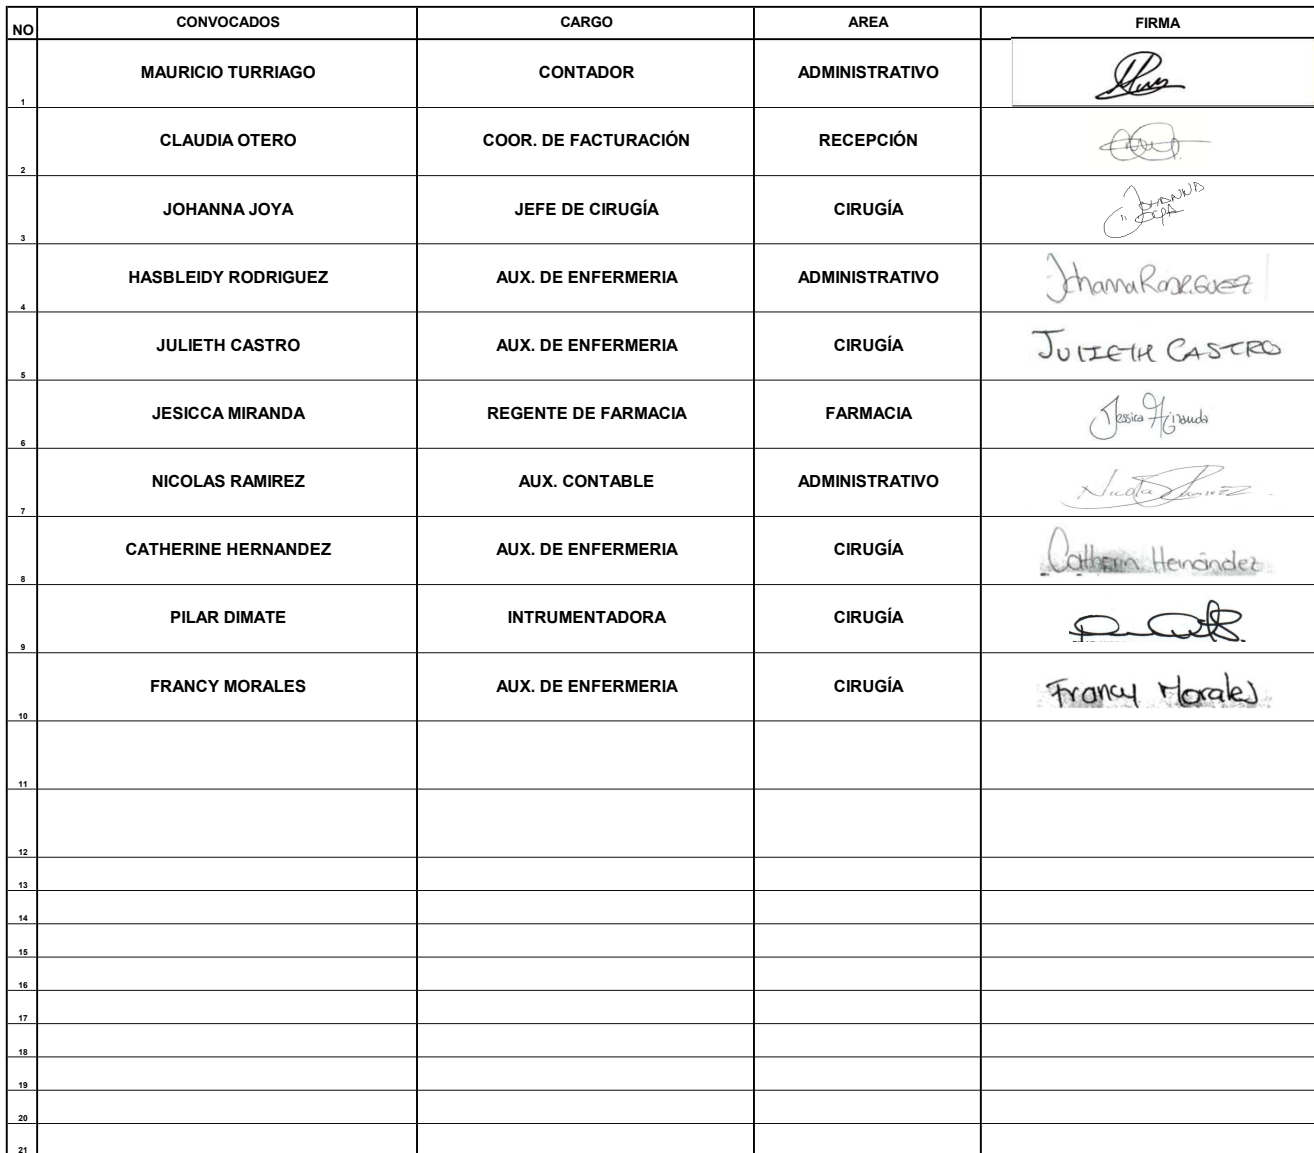 NO CONVOCADOS CARGO AREA FIRMA
1 MAURICIO TURRIAGO CONTADOR ADMINISTRATIVO
2 CLAUDIA OTERO COOR. DE FACTURACIÓN RECEPCIÓN
3 JOHANNA JOYA JEFE DE CIRUGÍA CIRUGÍA JOHANNA
4 HASBLEIDY RODRIGUEZ AUX. DE ENFERMERIA ADMINISTRATIVO Johanna RODRIGUEZ
5 JULIETH CASTRO AUX. DE ENFERMERIA CIRUGÍA JULIETH CASTRO
6 JESICCA MIRANDA REGENTE DE FARMACIA FARMACIA Jessica Miranda
7 NICOLAS RAMIREZ AUX. CONTABLE ADMINISTRATIVO Nicolas Ramirez
8 CATHERINE HERNANDEZ AUX. DE ENFERMERIA CIRUGÍA Catherin Hernández
9 PILAR DIMATE INTRUMENTADORA CIRUGÍA
10 FRANCY MORALES AUX. DE ENFERMERIA CIRUGÍA Francy Morales
11
12
13
14
15
16
17
18
19
20
21